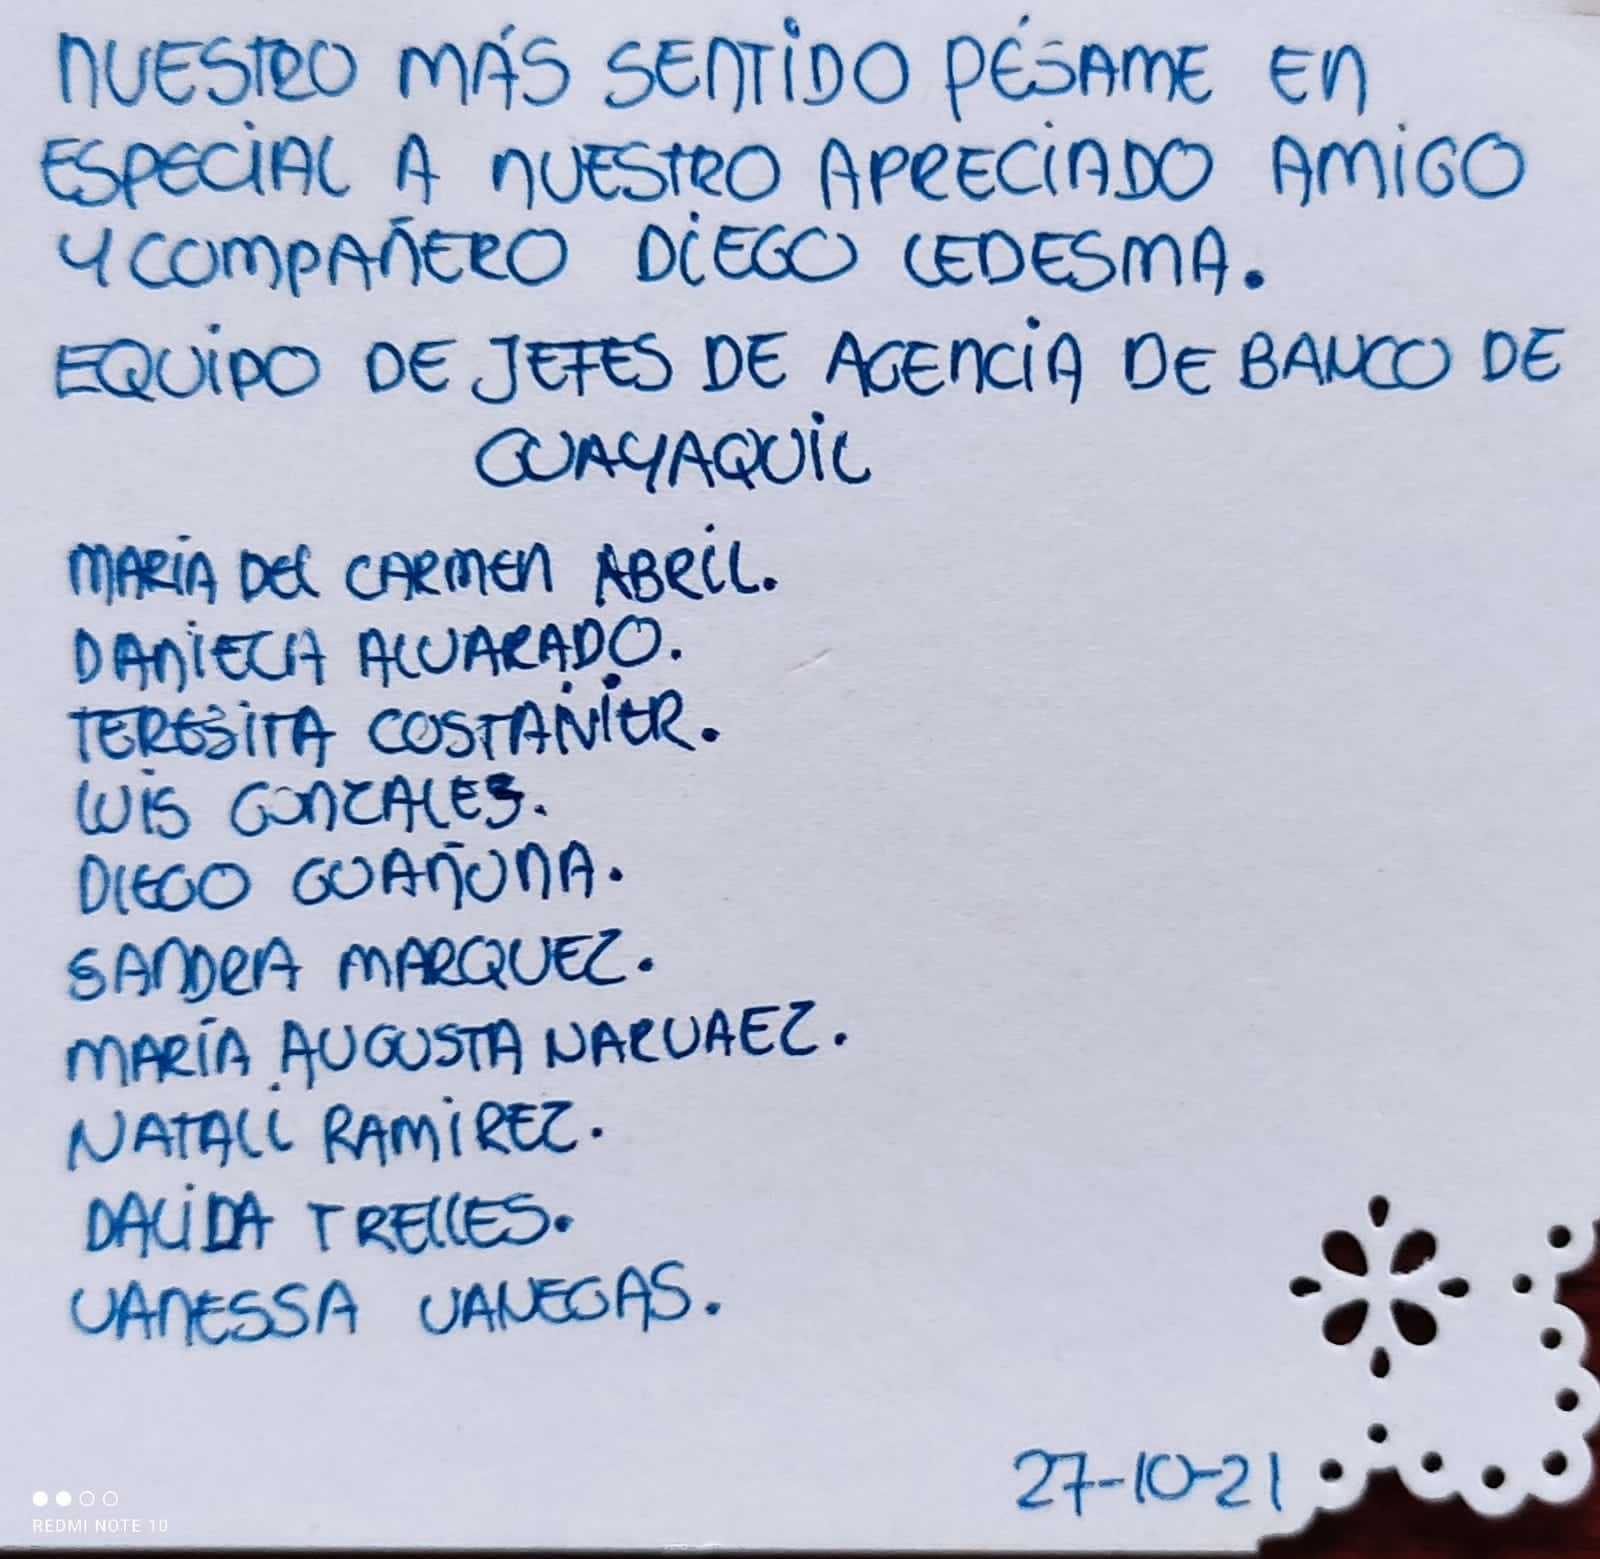 NUESTRO MÁS SENTIDO PÉSAME EN
ESPECIAL A NUESTRO APRECIADO AMIGO
Y COMPAÑERO DIEGO LEDESMA.
EQUIPO DE JEFES DE AGENCIA DE BANCO DE
GUAYAQUIL
MARÍA DEL CARMEN ABRIL.
DANIELA ALVARADO.
TERESITA COSTANIER.
LUIS GONZALES.
DIEGO GUAÑUNA.
SANDRA MARQUEZ.
MARÍA AUGUSTA NARVAEZ.
NATALI RAMIREZ.
DALIDA TRELLES.
VANESSA VANEGAS.
27-10-21
REDMI NOTE 10